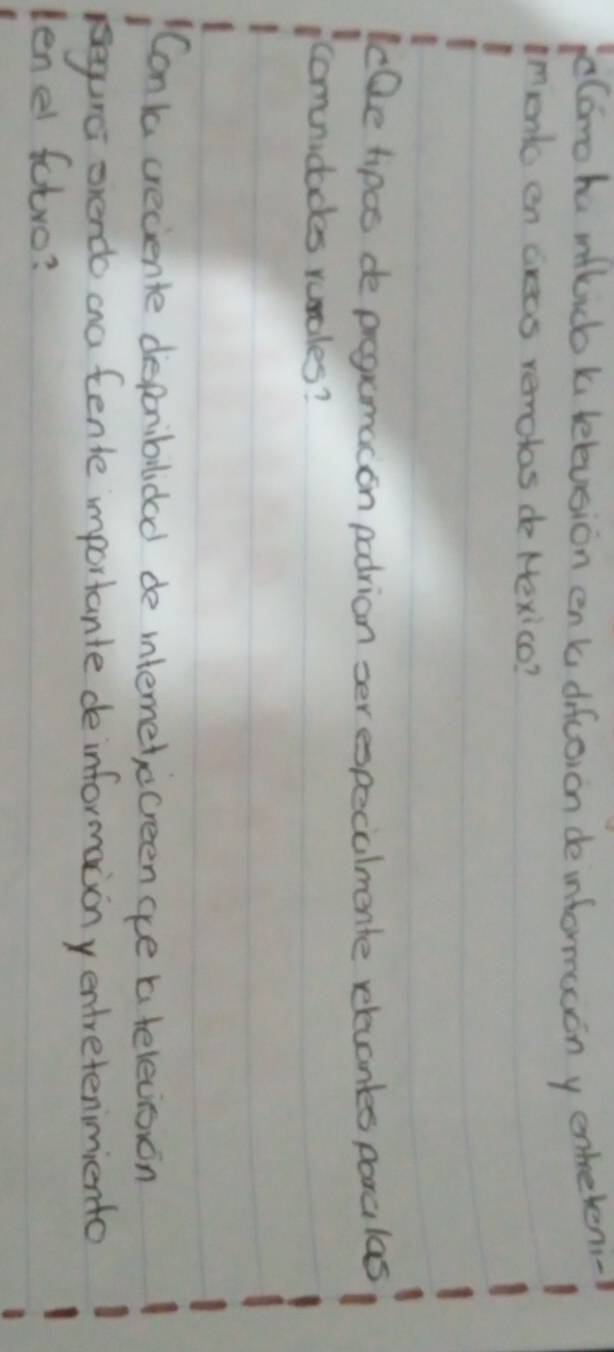 ¿Cómo ha influido la televisión en la difusión de información y entreteni-
miento en áreas remotas de Mexico?
¿Que tipos de programación podrian ser especialmente relevantes para las
comunidades rurales?
Con la creciente disponibilidad de internet, ¿Creen que la televisión
seguira siendo una fuente importante de información y entretenimiento
en el futuro?